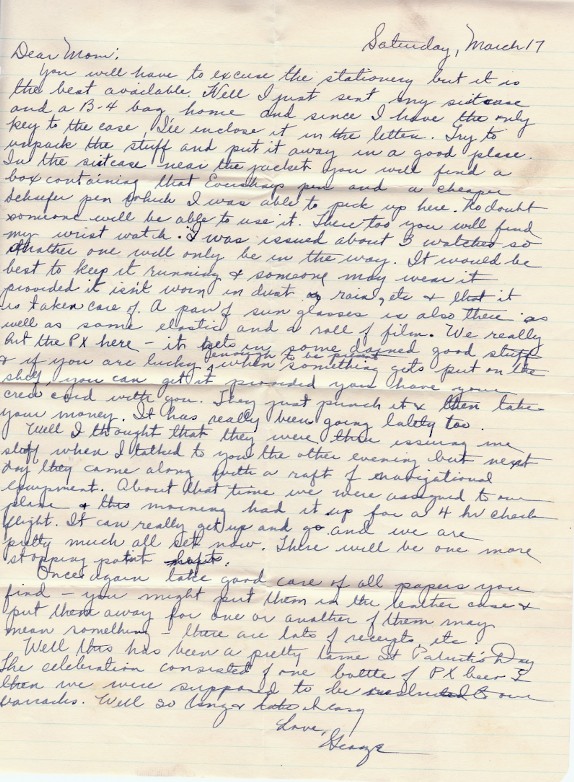 Saturday, March 17
Dear Mom:
You will have to excuse the stationery but it is
the best available. Well I just sent my suitcase
and a B-4 bag home and since I have the only
key to the case I'll inclose it in the letter. Try to
unpack the stuff and put it away in a good place.
In the suitcase near the jacket you will find a
box containing that Eversharp pen and a cheaper
Schaefer pen which I was able to pick up here. No doubt
someone will be able to use it. There too you will find
my wrist watch. I was issued about 3 watches so
another one will only be in the way. It would be
best to keep it running & someone may wear it
provided it isn't worn in dust, rain, etc & that it
is taken care of. A pair of sun glasses is also there as
well as some elastic and a roll of film. We really
hit the PX here - it gets in some darned good stuff
& if you are lucky enough to be present when something gets put on the
shelf, you can get it provided you have your
cred card with you. They just punch it & then take
your money. It has really been going lately too.
Well I thought that they were thru issuing me
stuff when I talked to you the other evening but next
day they came along with a raft of navigational
equipment. About that time we were assigned to our
plane & this morning had it up for a 4 hr check
flight. It can really get up and go and we are
pretty much all set now. There will be one more
stopping point
Once again take good care of all papers you
find - you might put them in the leather case &
put them away for one or another of them may
mean something - there are lots of receipts etc.
Well this has been a pretty tame St Patrick's Day
The celebration consisted of one bottle of PX beer &
then we were supposed to be our
barracks. Well so long & take it easy
Love,
George